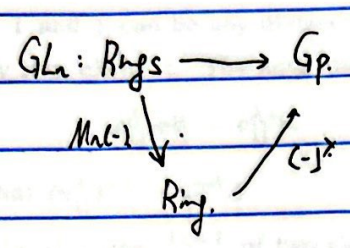 GLn: Rings → Gp.
Mn(-) (-)^×
Ring.